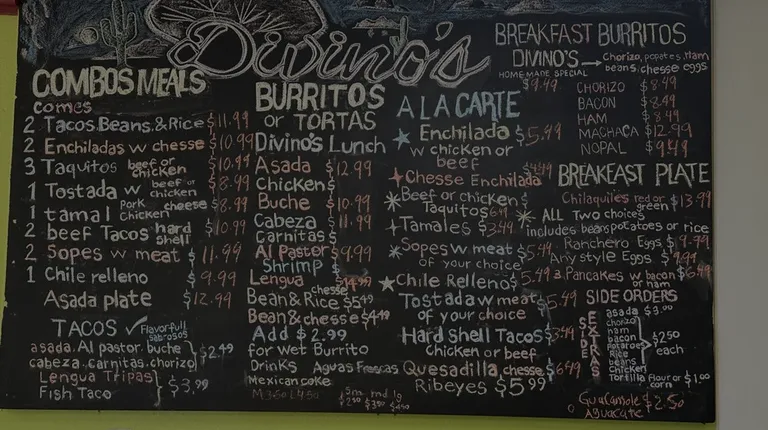 Divino's
COMBOS MEALS
comes
2 Tacos, Beans, & Rice $11.99
2 Enchiladas w chesse $10.99
3 Taquitos beef or chicken $10.99
1 Tostada w beef or chicken $8.99
1 tamal Pork chicken cheese $8.99
2 beef Tacos hard shell $10.99
2 Sopes w meat $11.99
1 Chile relleno $9.99
Asada plate $12.99
TACOS ✓ Flavorfull sabrosos
asada, Al pastor, buche
cabeza, carnitas, chorizo $2.49
Lengua Tripas
Fish Taco $3.99
BURRITOS
or TORTAS
Divino's Lunch
Asada $12.99
Chicken $
Buche $10.99
Cabeza $11.99
Carnitas $
Al Pastor $9.99
Shrimp
Lengua $14.99
Bean & Rice chesse $5.49
Bean & chesse $4.49
Add $2.99
for Wet Burrito
Drinks Aguas Frescas
Mexican coke sm md lg
M3.50 L4.50 $2.50 $3.50 $4.50
A LA CARTE
Enchilada $5.99
w chicken or
beef
Chesse Enchilada $4.99
Beef or chicken $
Taquitos 6.49
Tamales $3.49
Sopes w meat $5.49
of your choice
Chile Relleno $5.49
Tostada w meat $5.49
of your choice
Hard Shell Tacos $3.49
chicken or beef
Quesadilla, chesse $6.49
Ribeyes $5.99
BREAKFAST BURRITOS
DIVINO'S → Chorizo, potates, Ham
HOMEMADE SPECIAL beans, chesse eggs
$9.49
CHORIZO $8.49
BACON $8.49
HAM $8.49
MACHACA $12.99
NOPAL $9.49
BREAKFAST PLATE
Chilaquiles red or green $13.99
ALL Two choices
includes beans potatoes or rice
Ranchero Eggs $9.79
Any style Eggs $9.99
3 Pancakes w bacon or ham $6.49
SIDE ORDERS
SIDE EXTRAS
asada $3.00
chorizo
ham
bacon
potatoes
Rice
beans
chicken
$2.50 each
Tortilla flour or corn $1.00
Guacamole
Aguacate $2.50